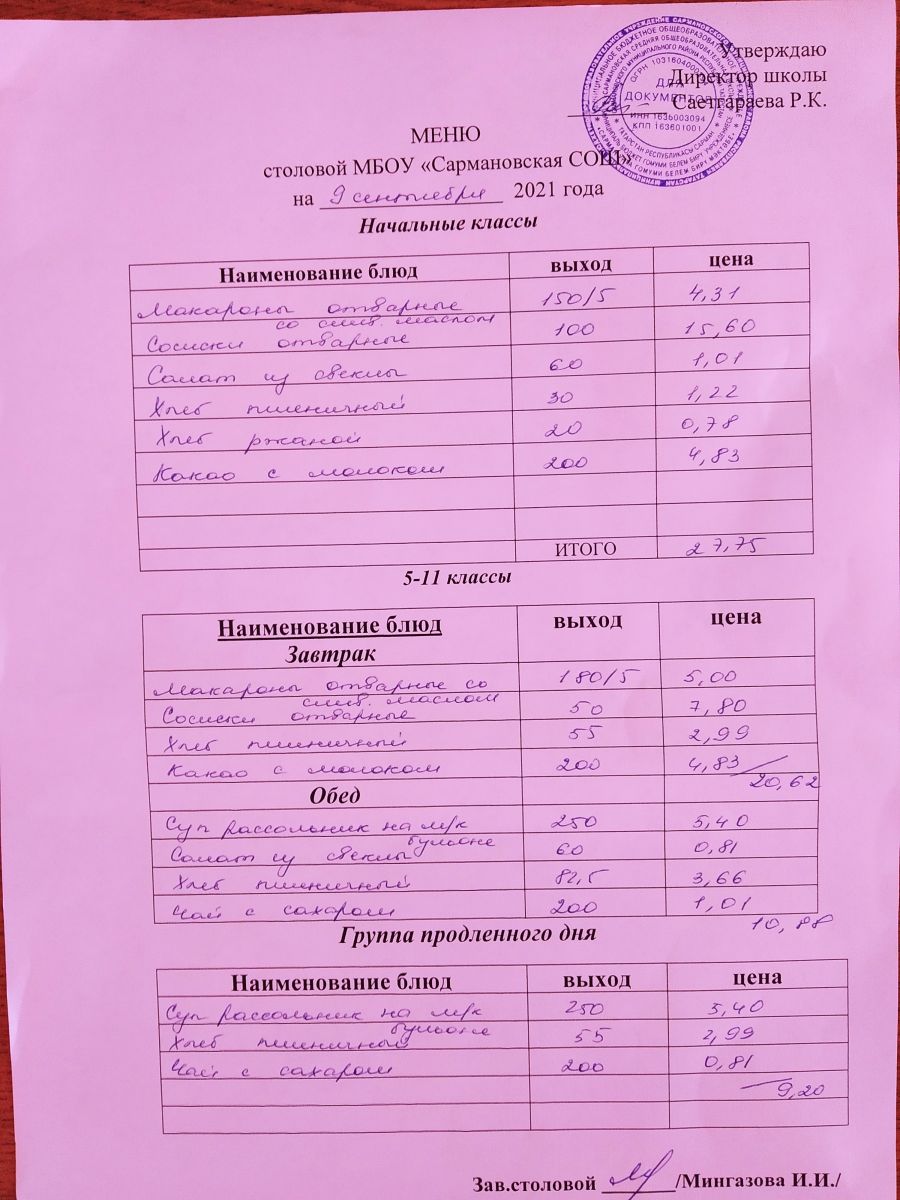 Утверждаю
Директор школы
Саетгараева Р.К.
ДЛЯ
ДОКУМЕНТОВ
ИНН 1636003094
КПП 163601001
МЕНЮ
столовой МБОУ «Сармановская СОШ»
на 9 сентября 2021 года
Начальные классы
Наименование блюд выход цена
Макароны отварные 150/5 4,31
со слив. маслом
Сосиски отварные 100 15,60
Салат из свеклы 60 1,01
Хлеб пшеничный 30 1,22
Хлеб ржаной 20 0,78
Какао с молоком 200 4,83
ИТОГО 27,75
5-11 классы
Наименование блюд выход цена
Завтрак
Макароны отварные со 180/5 5,00
слив. маслом
Сосиски отварные 50 7,80
Хлеб пшеничный 55 2,99
Какао с молоком 200 4,83
20,62
Обед
Суп рассольник на м/к 250 5,40
бульоне
Салат из свеклы 60 0,81
Хлеб пшеничный 82,5 3,66
Чай с сахаром 200 1,01
10,88
Группа продленного дня
Наименование блюд выход цена
Суп рассольник на м/к 250 5,40
бульоне
Хлеб пшеничный 55 2,99
Чай с сахаром 200 0,81
9,20
Зав.столовой /Мингазова И.И./